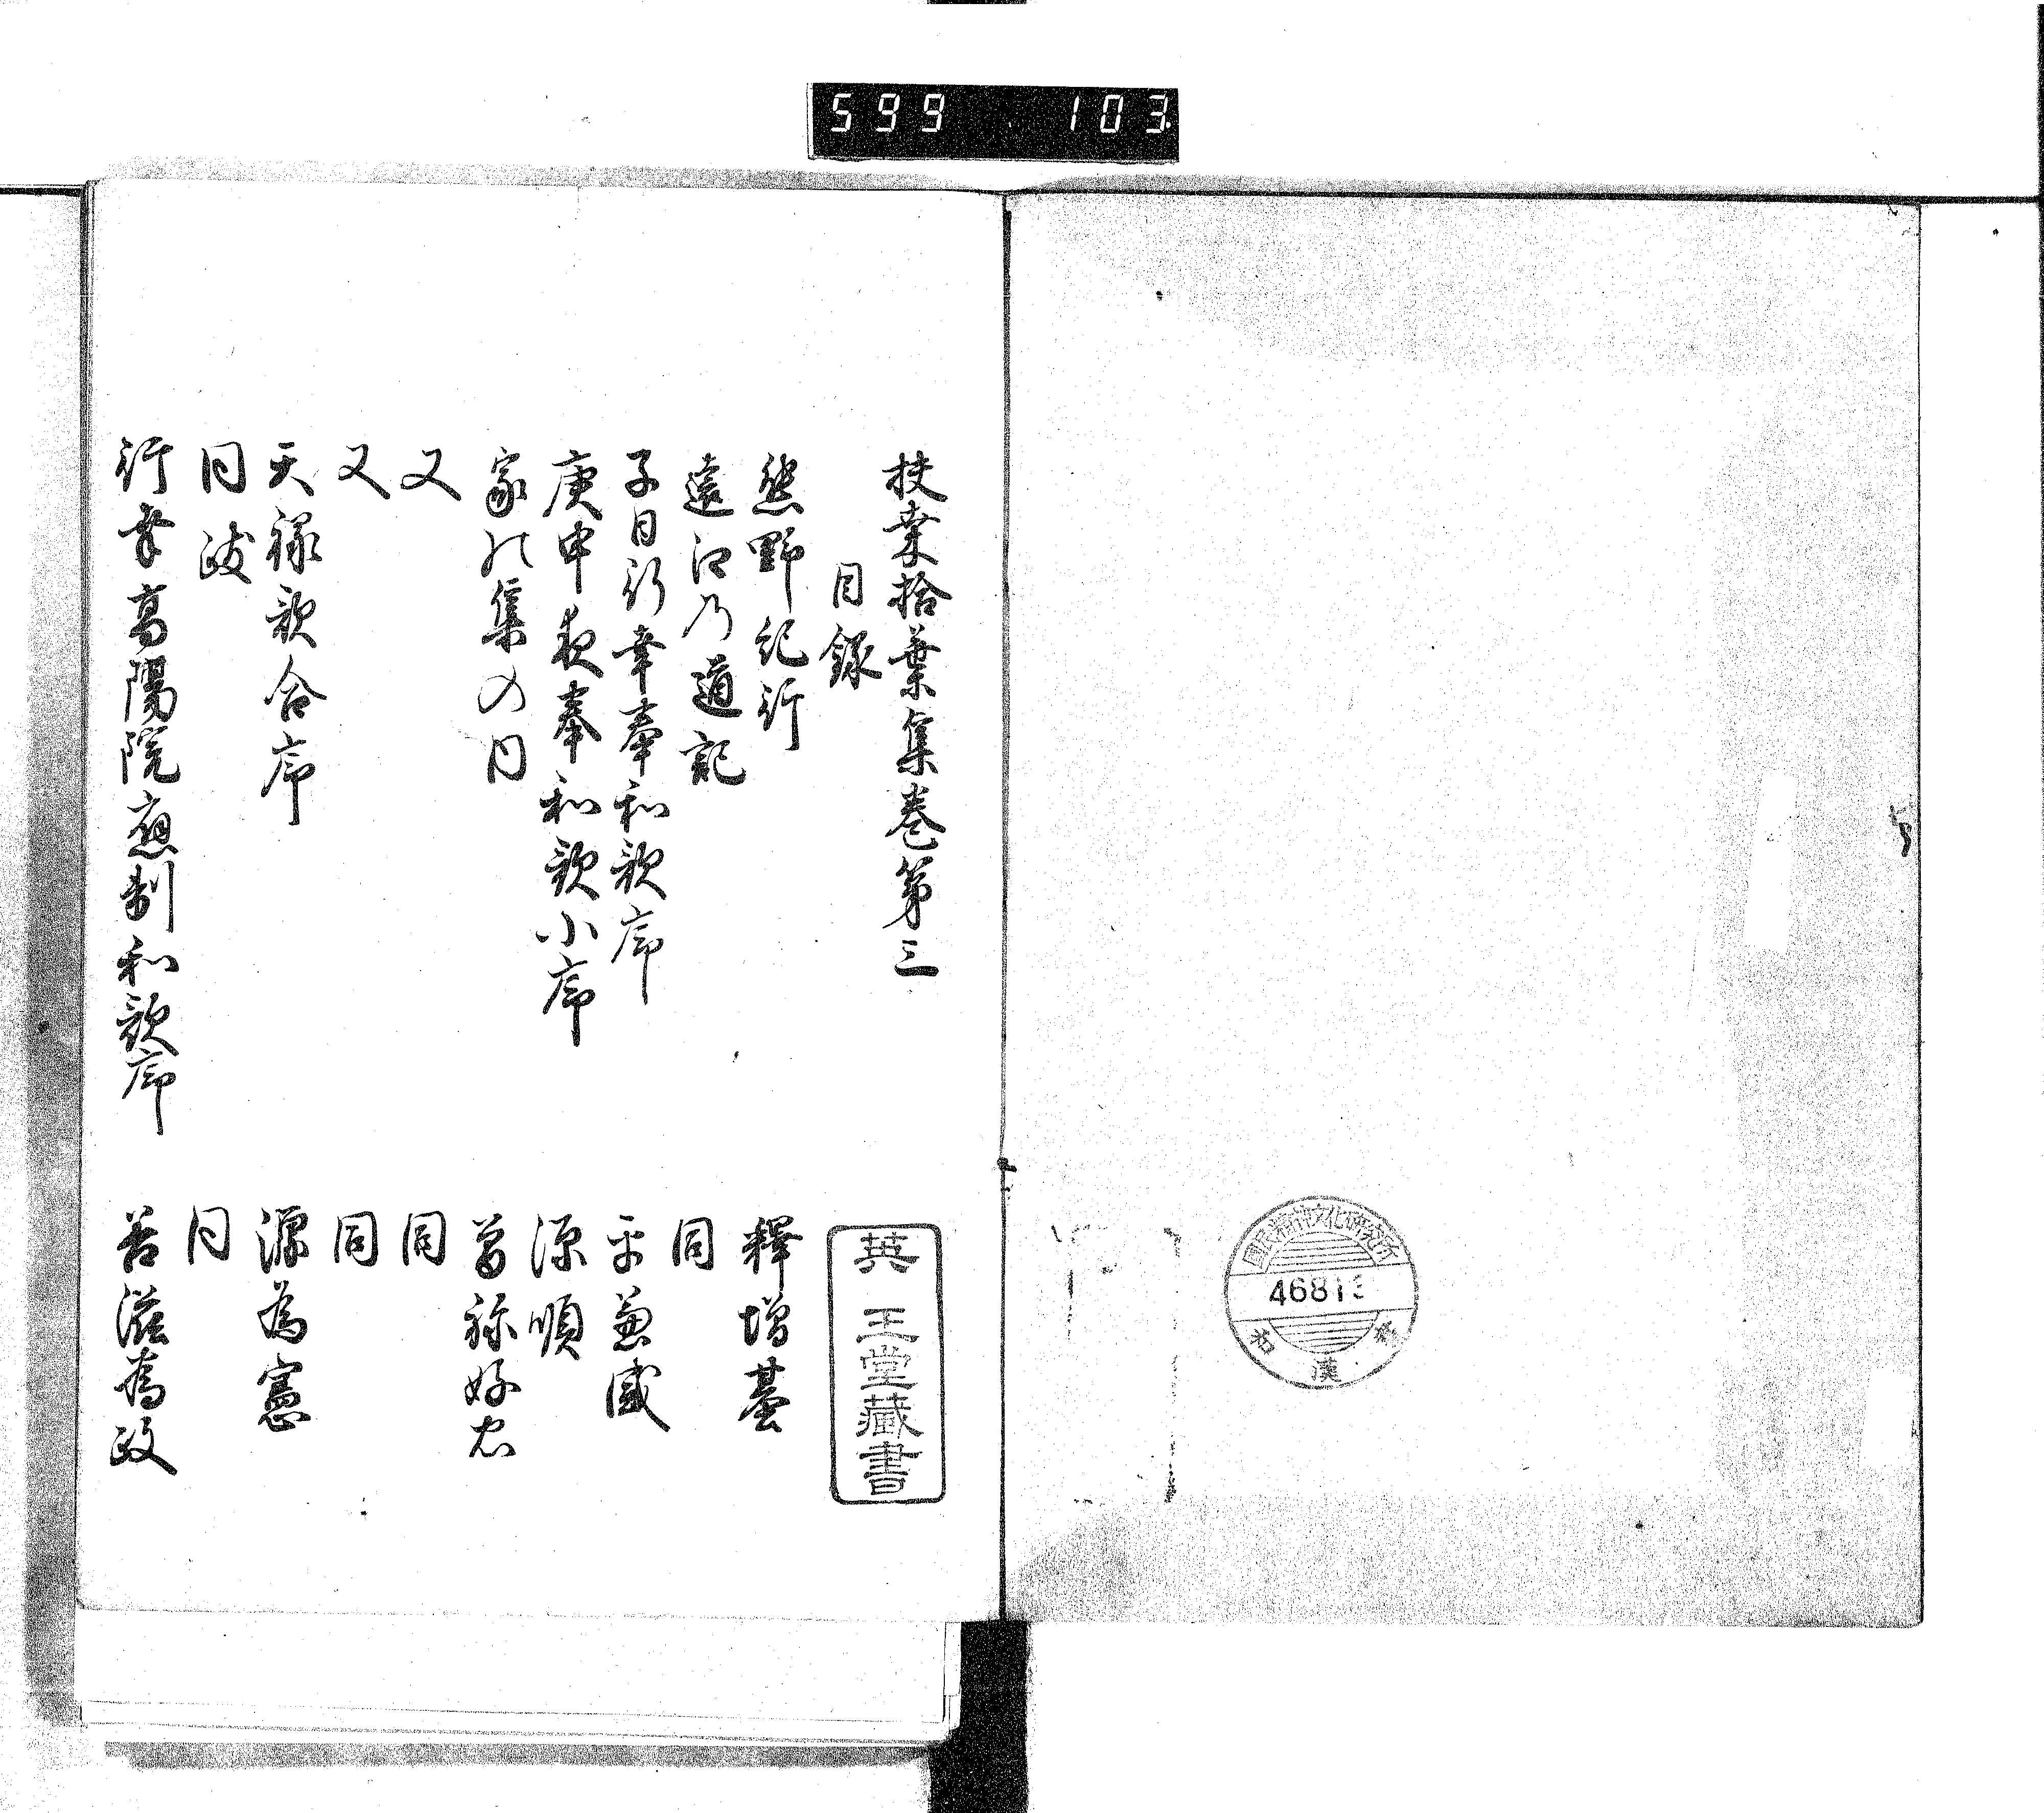 599 103
國民精神文化研究所
46813
和漢書
扶桒拾葉集巻第三
目録
熊野紀行 釋増基
遠江乃道記 同
子日行幸奉和歌序 平兼盛
庚申夜奉和歌小序 源順
家の集の内 曽祢好忠
又 同
又 同
天禄歌合序 源為憲
同跋 同
行幸高陽院應制和歌序 善滋為政
英 王堂藏書